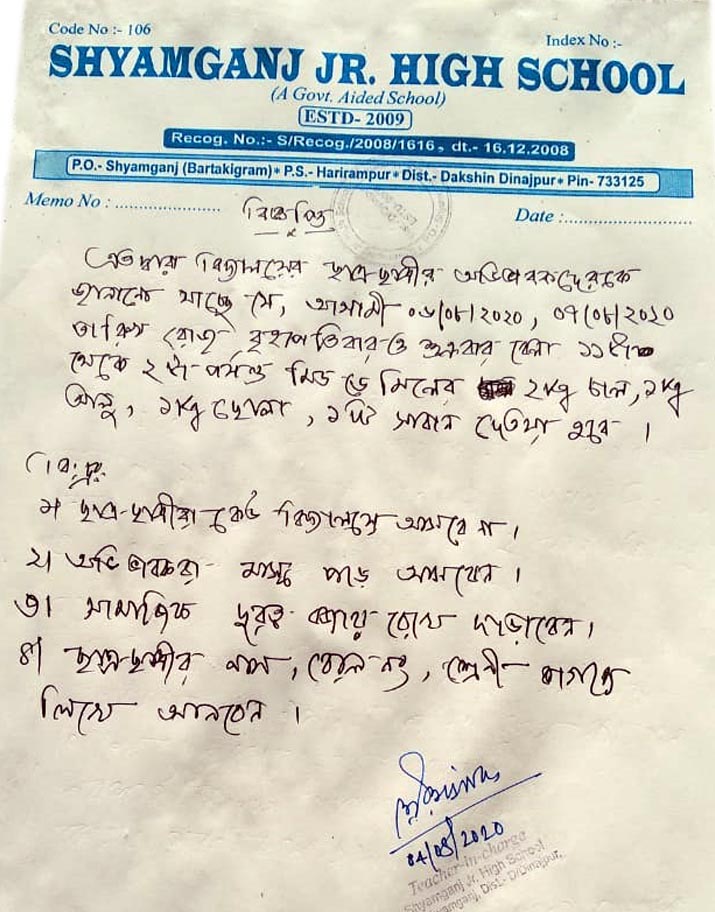 Code No :- 106
Index No :-
SHYAMGANJ JR. HIGH SCHOOL
(A Govt. Aided School)
ESTD- 2009
Recog. No.:- S/Recog./2008/1616, dt.- 16.12.2008
P.O.- Shyamganj (Bartakigram) * P.S.- Harirampur * Dist.- Dakshin Dinajpur * Pin- 733125
Memo No : .....................
বিজ্ঞপ্তি
Date :.........................
এতদ্বারা বিদ্যালয়ের ছাত্র-ছাত্রীর অভিভাবকদেরকে
জানানো যাচ্ছে যে, আগামী ০৬/০৮/২০২০, ০৭/০৮/২০২০
তারিখ রোজ বৃহস্পতিবার ও শুক্রবার বেলা ১১টা
থেকে ২ টা পর্যন্ত মিড ডে মিলের ২ kg চাল, ১ kg
আলু, ১ kg ছোলা, ১ টি সাবান দেওয়া হবে ।
বিঃ দ্রঃ
১। ছাত্র-ছাত্রীরা কেউ বিদ্যালয়ে আসবে না ।
২। অভিভাবকরা মাস্ক পড়ে আসবেন ।
৩। সামাজিক দূরত্ব বজায় রেখে দাড়াবেন ।
৪। ছাত্র-ছাত্রীর নাম, রোল নং, শ্রেণী কাগজে
লিখে আনবেন ।
04/08/2020
Teacher-in-charge
Shyamganj Jr. High School
Shyamganj, Dist.- D/Dinajpur.